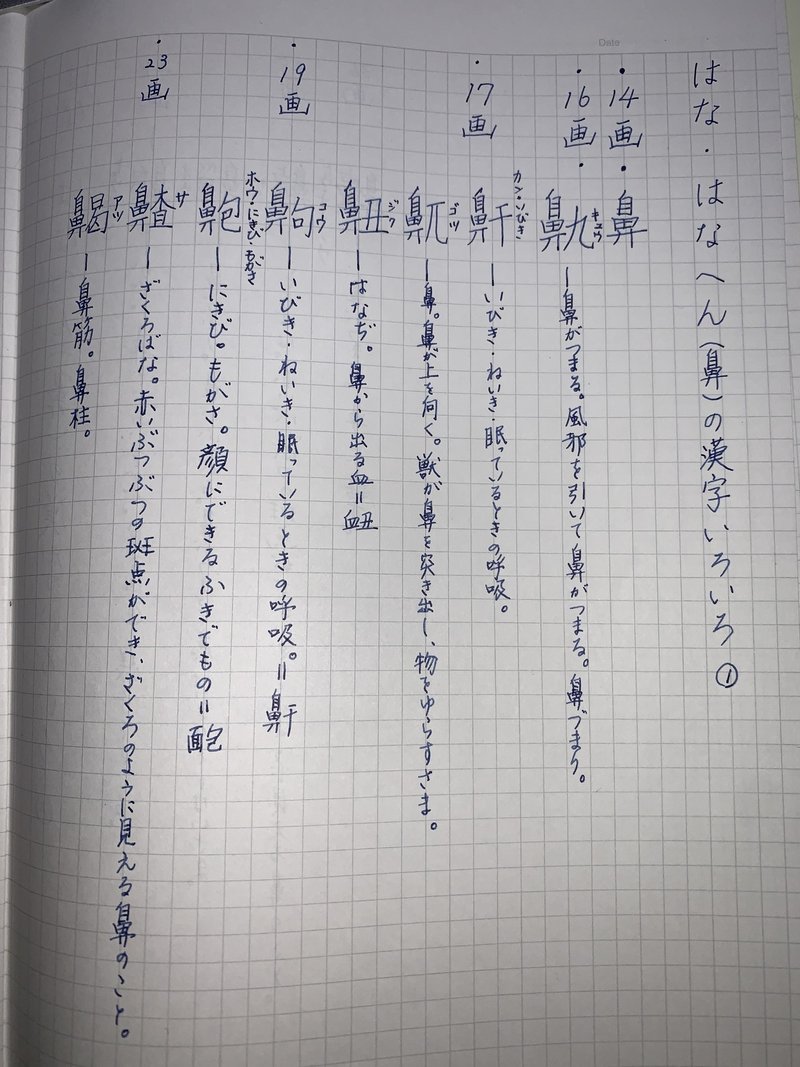 Date
はな・はなへん(鼻)の漢字いろいろ①
・14画・鼻
・16画・鼽 キュウ ー鼻がつまる。風邪を引いて鼻がつまる。鼻づまり。
・17画 鼾 カン・いびき ーいびき・ねいき・眠っているときの呼吸。
鼿 ゴツ ー鼻。鼻が上を向く。獣が鼻を突き出し、物をゆらすさま。
䶊 ジク ーはなぢ。鼻から出る血=衄
・19画 齁 コウ ーいびき・ねいき・眠っているときの呼吸。=鼾
䶌 ホウ・にきび・もがさ ーにきび。もがさ。顔にできるふきでもの=靤
・23画 齄 サ ーざくろばな。赤いぶつぶつの斑点ができ、ざくろのように見える鼻のこと。
齃 アツ ー鼻筋。鼻柱。